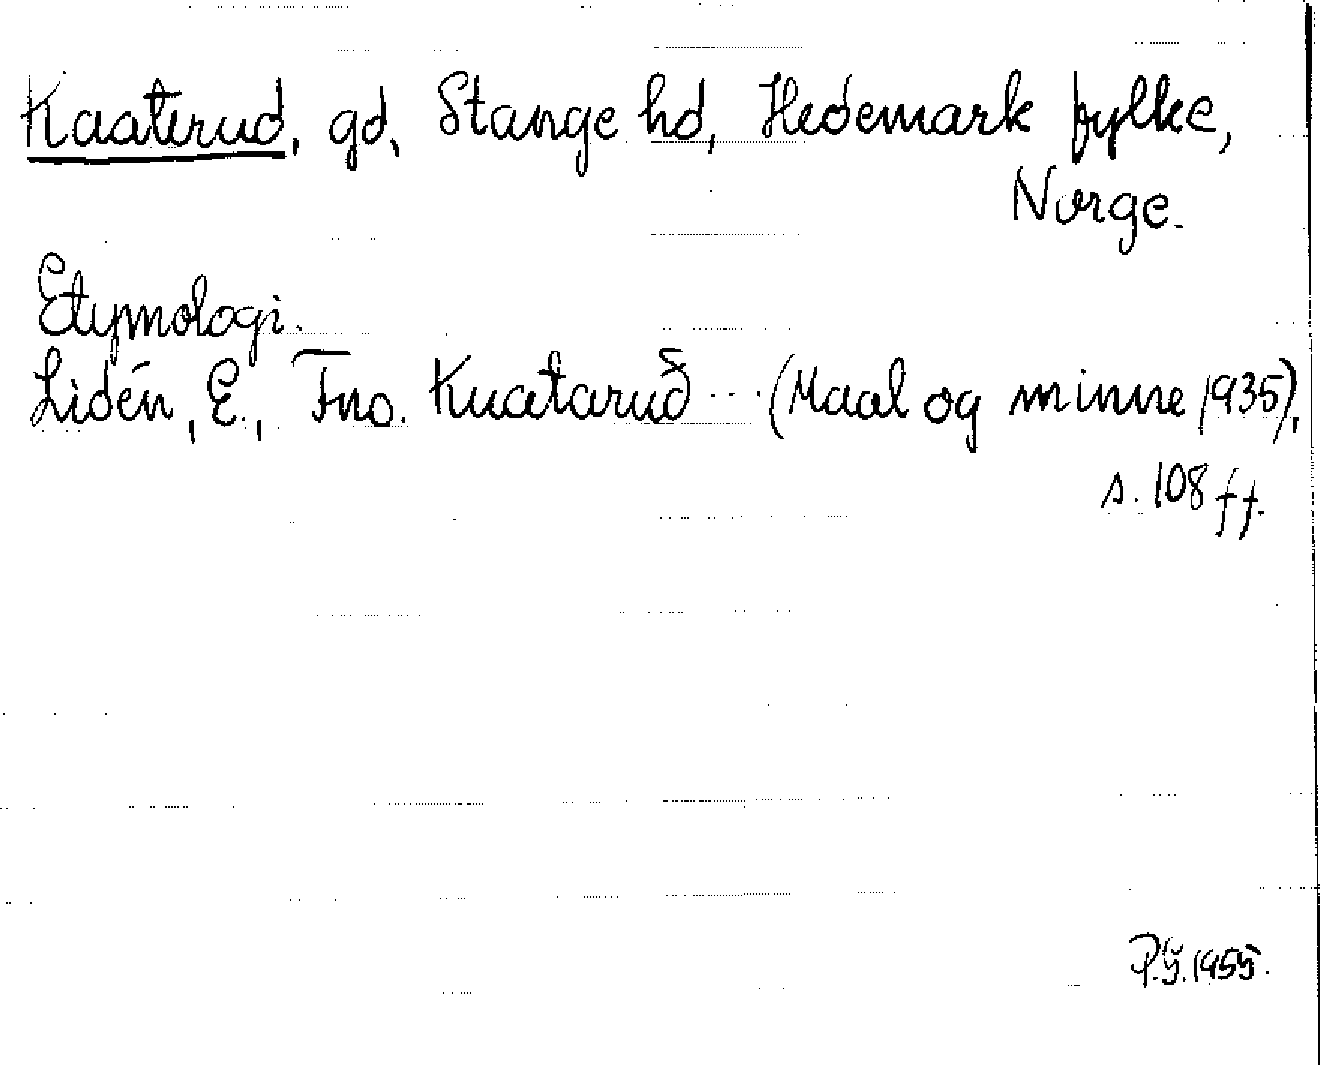 Kaaterud, gd, Stange hd, Hedemark fylke,
Norge.
Etymologi.
Lidén, E., Fno. Kuataruð ... (Maal og minne 1935),
s. 108 ff.
P.G. 1955.